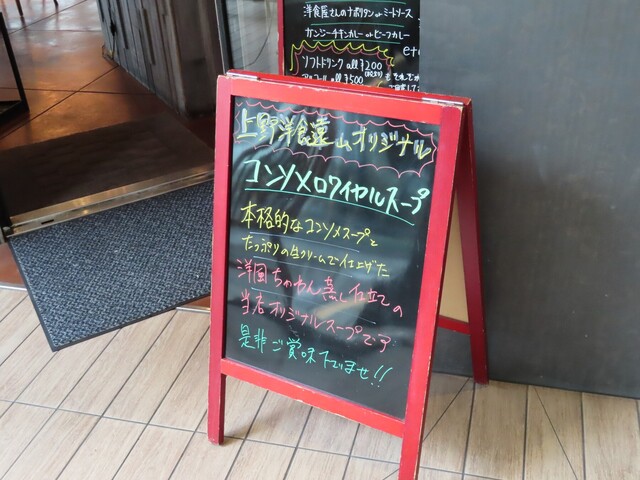 洋食屋さんのナポリタン or ミートソース
ガンジーチキンカレー or ビーフカレー
etc
ソフトドリンク all ¥200
アルコール all ¥500
上野洋食遠山オリジナル
コンソメロワイヤルスープ
本格的なコンソメスープと
たっぷりの生クリームで仕上げた
洋風ちゃわん蒸し仕立ての
当店オリジナルスープです
是非ご賞味下さいませ!!